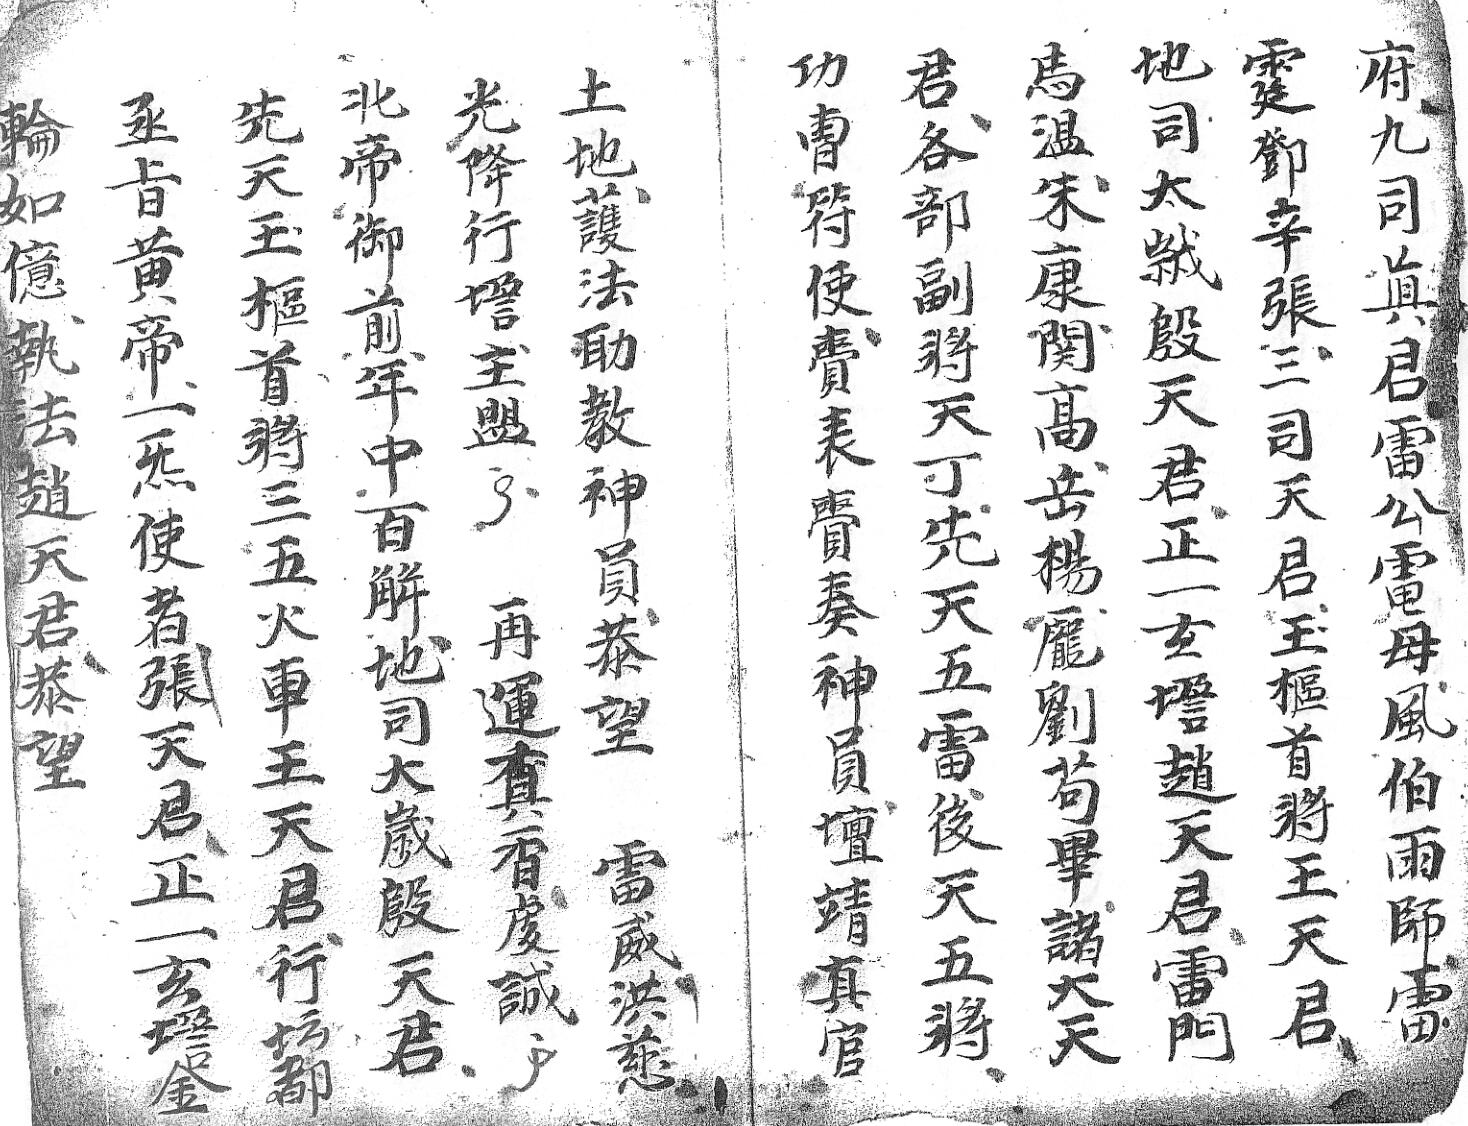 府九司真君雷公電母風伯雨師雷
霆鄧辛張三司天君玉樞首將王天君
地司太歲殷天君正一玄壇趙天君雷門
馬温朱康関高岳楊龐劉苟畢諸大天
君各部副將天丁先天五雷後天五將
功曹符使賫表賫奏神員壇靖真官
土地護法助教神員恭望 雷威洪慈
光降行壇主盟 再運真香虔誠
北帝御前年中百解地司大歲殷天君
先天玉樞首將三五火車王天君行壇都
丞旨黄帝一炁使者張天君正一玄壇金
輪如億執法趙天君恭望